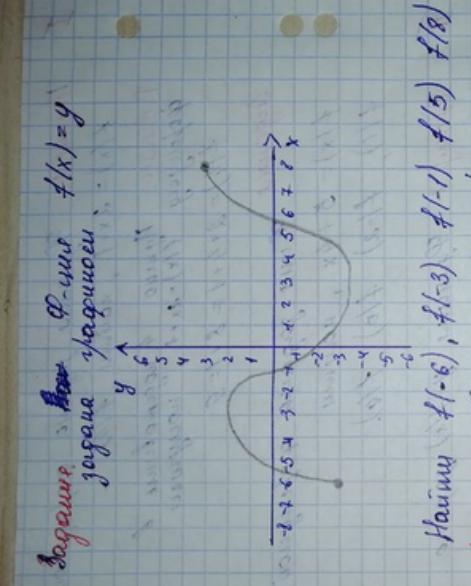 Задание. Ф-ция f(x) = y
задана графиком.
y
6
5
4
3
2
1
-8 -7 -6 -5 -4 -3 -2 -1 1 2 3 4 5 6 7 8 x
-1
-2
-3
-4
-5
-6
Найти f(-6), f(-3) f(-1) f(5) f(8)